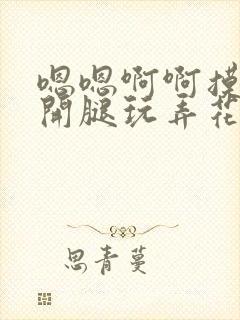 嗯嗯啊啊摸
開腿玩弄花
思青蔓